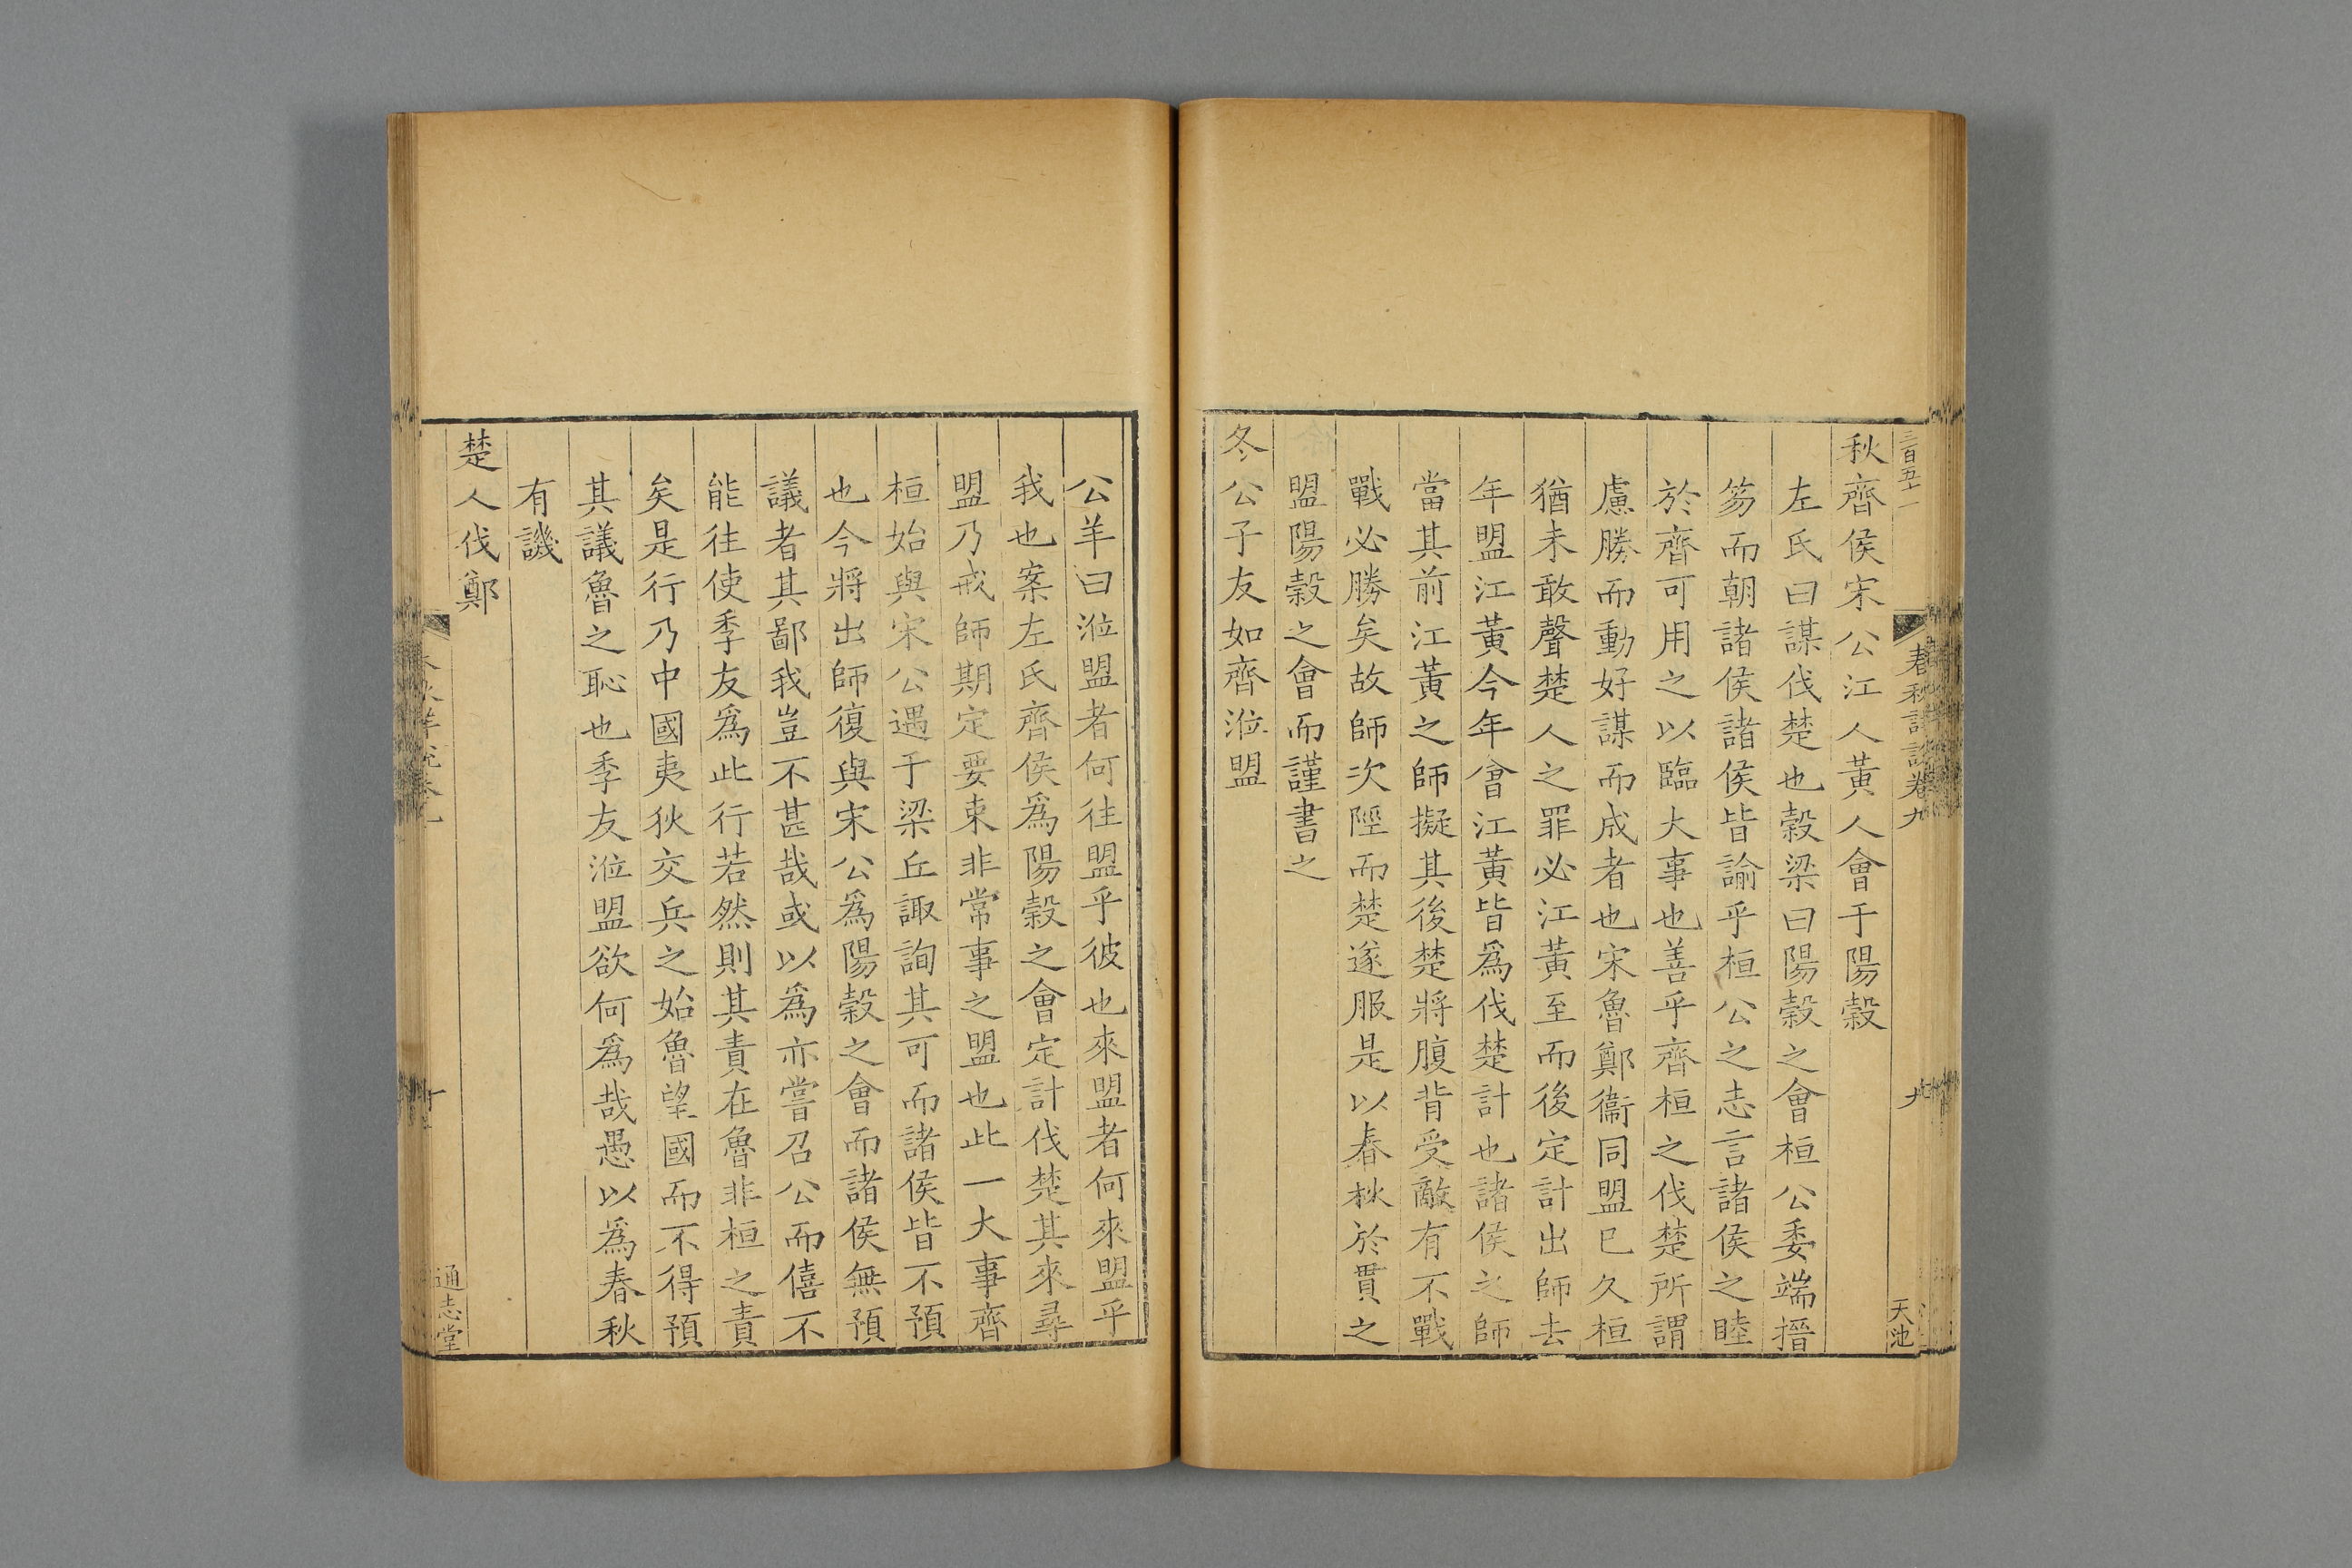 三百五十一
春秋詳說卷九
九
天池
秋齊侯宋公江人黃人會于陽穀
左氏曰謀伐楚也穀梁曰陽穀之會桓公委端搢
笏而朝諸侯諸侯皆諭乎桓公之志言諸侯之睦
於齊可用之以臨大事也善乎齊桓之伐楚所謂
慮勝而動好謀而成者也宋魯鄭衞同盟已久桓
猶未敢聲楚人之罪必江黃至而後定計出師去
年盟江黃今年會江黃皆爲伐楚計也諸侯之師
當其前江黃之師擬其後楚將腹背受敵有不戰
戰必勝矣故師次陘而楚遂服是以春秋於貫之
盟陽穀之會而謹書之
冬公子友如齊涖盟
公羊曰涖盟者何往盟乎彼也來盟者何來盟乎
我也案左氏齊侯爲陽穀之會定計伐楚其來尋
盟乃戒師期定要束非常事之盟也此一大事齊
桓始與宋公遇于梁丘諏詢其可而諸侯皆不預
也今將出師復與宋公爲陽穀之會而諸侯無預
議者其鄙我豈不甚哉或以爲亦嘗召公而僖不
能往使季友爲此行若然則其責在魯非桓之責
矣是行乃中國夷狄交兵之始魯望國而不得預
其議魯之恥也季友涖盟欲何爲哉愚以爲春秋
有譏
楚人伐鄭
十
通志堂